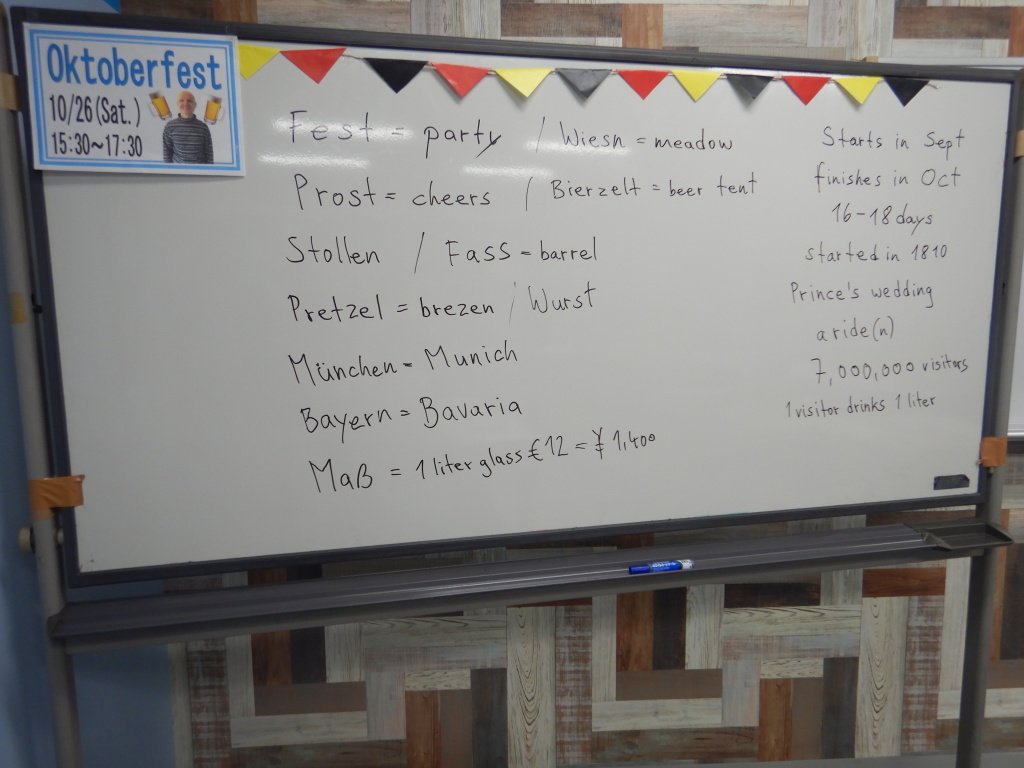 Oktoberfest
10/26(Sat.)
15:30~17:30
Fest = party / Wiesn = meadow
Prost = cheers / Bierzelt = beer tent
Stollen / Fass = barrel
Pretzel = brezen / Wurst
München = Munich
Bayern = Bavaria
Maß = 1 liter glass €12 = ¥ 1,400
Starts in Sept
finishes in Oct
16-18 days
started in 1810
Prince's wedding
a ride(n)
7,000,000 visitors
1 visitor drinks 1 liter